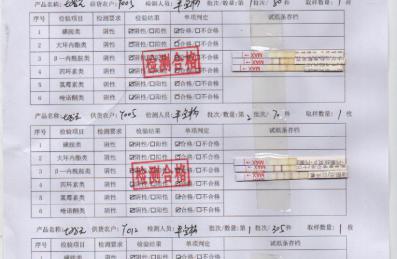 产品名称: 供货农户: 7005 检测人员: 批次/数量: 第1批次/80枚 取样数量: 1枚
序号 检验项目 检测要求 检验结果 单项判定 试纸条存档
1 磺胺类 阴性 ☑阴性/□阳性 ☑合格/□不合格
2 大环内酯类 阴性 ☑阴性/□阳性 ☑合格/□不合格
3 β-内酰胺类 阴性 ☑阴性/□阳性 ☑合格/□不合格
4 四环素类 阴性 ☑阴性/□阳性 ☑合格/□不合格
5 氯霉素类 阴性 ☑阴性/□阳性 ☑合格/□不合格
6 喹诺酮类 阴性 ☑阴性/□阳性 ☑合格/□不合格
检测合格
MAX
产品名称: 供货农户: 7005 检测人员: 批次/数量: 第2批次/70枚 取样数量: 1枚
序号 检验项目 检测要求 检验结果 单项判定 试纸条存档
1 磺胺类 阴性 ☑阴性/□阳性 ☑合格/□不合格
2 大环内酯类 阴性 ☑阴性/□阳性 ☑合格/□不合格
3 β-内酰胺类 阴性 ☑阴性/□阳性 ☑合格/□不合格
4 四环素类 阴性 ☑阴性/□阳性 ☑合格/□不合格
5 氯霉素类 阴性 ☑阴性/□阳性 ☑合格/□不合格
6 喹诺酮类 阴性 ☑阴性/□阳性 ☑合格/□不合格
检测合格
MAX
产品名称: 供货农户: 7012 检测人员: 批次/数量: 第1批次/305枚 取样数量: 1枚
序号 检验项目 检测要求 检验结果 单项判定 试纸条存档
1 磺胺类 阴性 ☑阴性/□阳性 ☑合格/□不合格